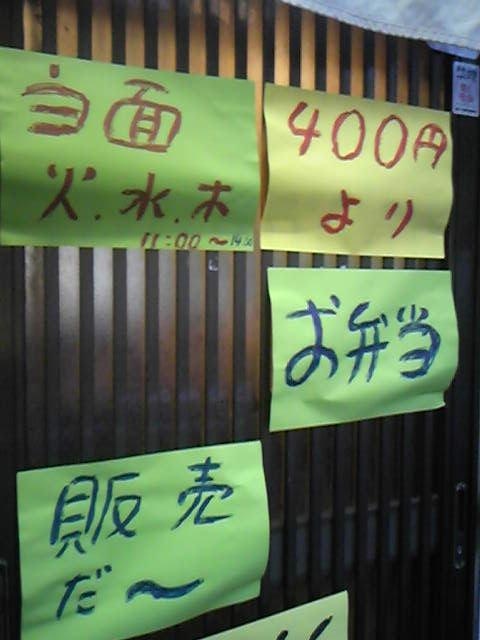 当面
火.水.木
11:00〜14:00
400円
より
お弁当
販売
だ〜